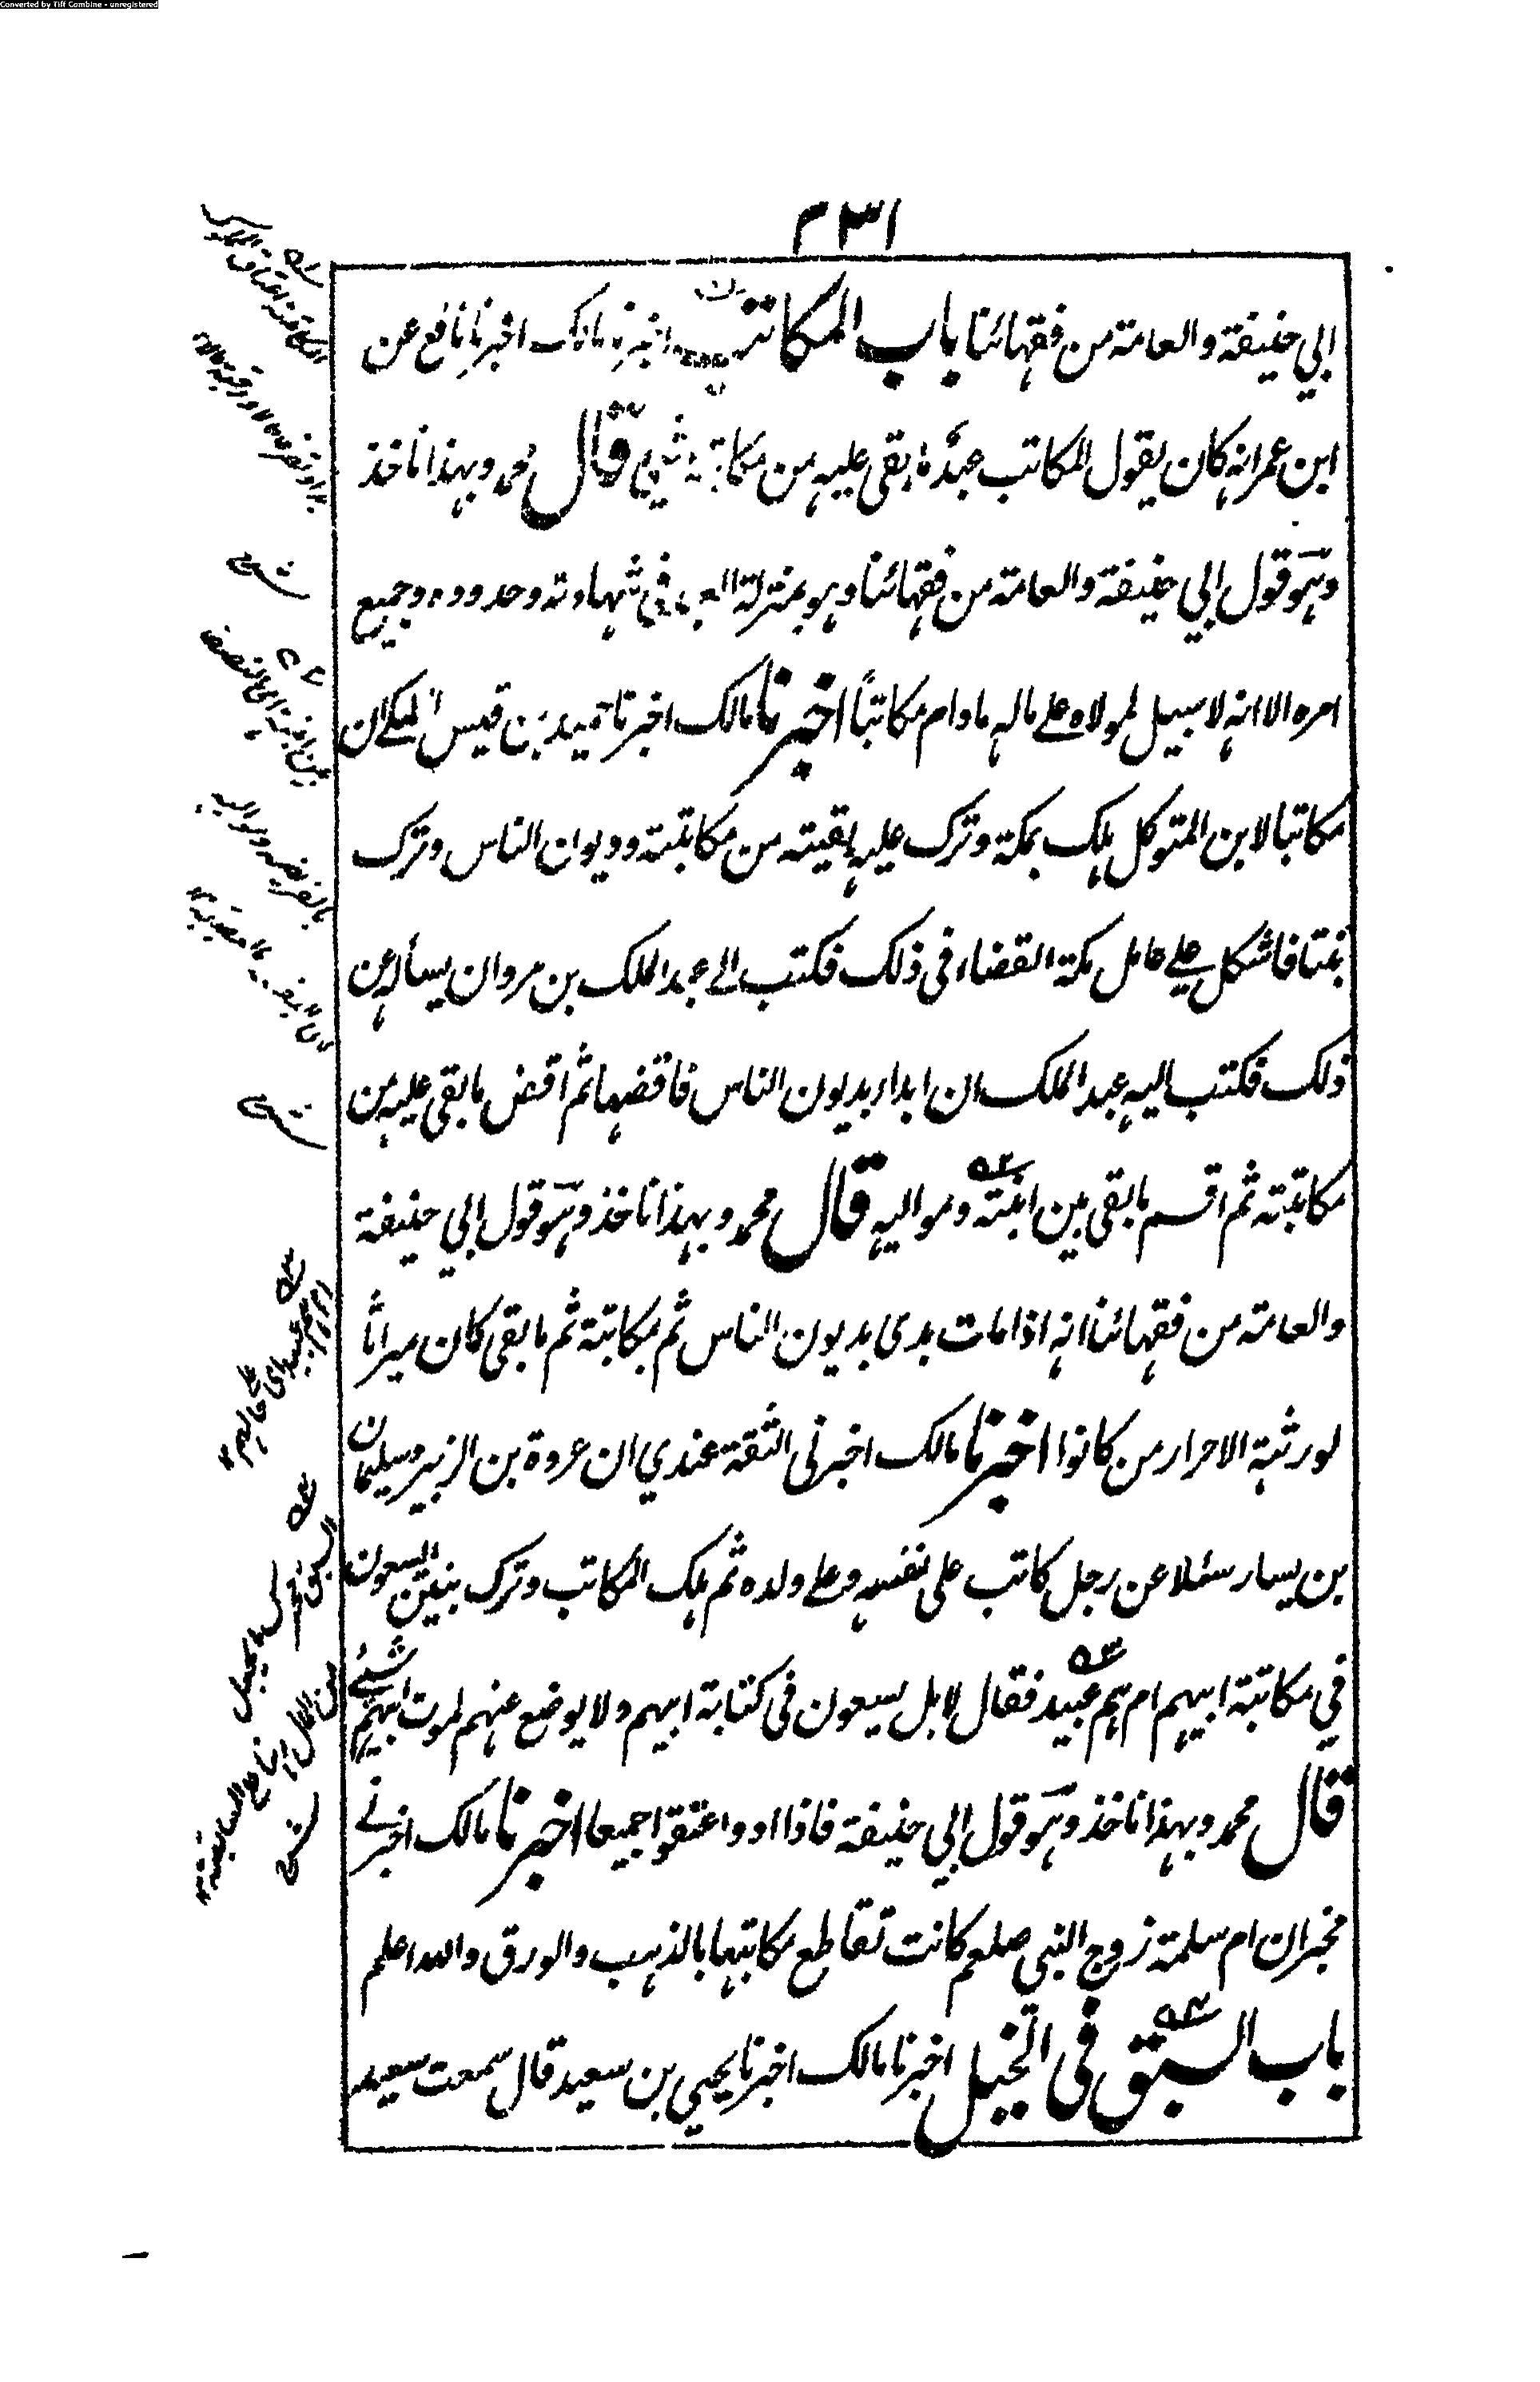 Converted by Tiff Combine - unregistered
٣٣١
ابي حنيفة والعامة من فقهائنا باب المكاتب اخبرنا مالك اخبرنا نافع عن
ابن عمر انه كان يقول المكاتب عبد ما بقي عليه من مكاتبته شيء قال محمد وبهذا ناخذ
وهو قول ابي حنيفة والعامة من فقهائنا وهو بمنزلة العبد في شهادته وحدوده وجميع
امره الا انه لا سبيل لمولاه على ماله ما دام مكاتبًا اخبرنا مالك اخبرنا حميد بن قيس المكي ان
مكاتبا لابن المتوكل هلك بمكة وترك عليه بقية من مكاتبته وديوان الناس وترك
ابنتا فاشكل على عامل مكة القضاء في ذلك فكتب الى عبد الملك بن مروان يسأله عن
ذلك فكتب اليه عبد الملك ان ابدا بديون الناس فاقضها ثم اقض ما بقي عليه من
مكاتبته ثم اقسم ما بقي بين ابنته ومواليه قال محمد وبهذا ناخذ وهو قول ابي حنيفة
والعامة من فقهائنا انه اذا مات بدي بديون الناس ثم بمكاتبته ثم ما بقي كان ميراثًا
لورثته الاحرار من كانوا اخبرنا مالك اخبرني الثقة عندي ان عروة بن الزبير وسليمان
بن يسار سئلا عن رجل كاتب على نفسه وعلى ولده ثم هلك المكاتب وترك بنين ايسعون
في مكاتبة ابيهم ام هم عبيد فقال لا بل يسعون في كتابة ابيهم ولا يوضع عنهم لموت ابيهم شيء
قال محمد وبهذا ناخذ وهو قول ابي حنيفة فاذا ادوا عتقوا جميعا اخبرنا مالك اخبرني
مخبر ان ام سلمة زوج النبي صلعم كانت تقاطع مكاتبتها بالذهب والورق والله اعلم
باب السبق في الخيل اخبرنا مالك اخبرنا يحيى بن سعيد قال سمعت سعيد